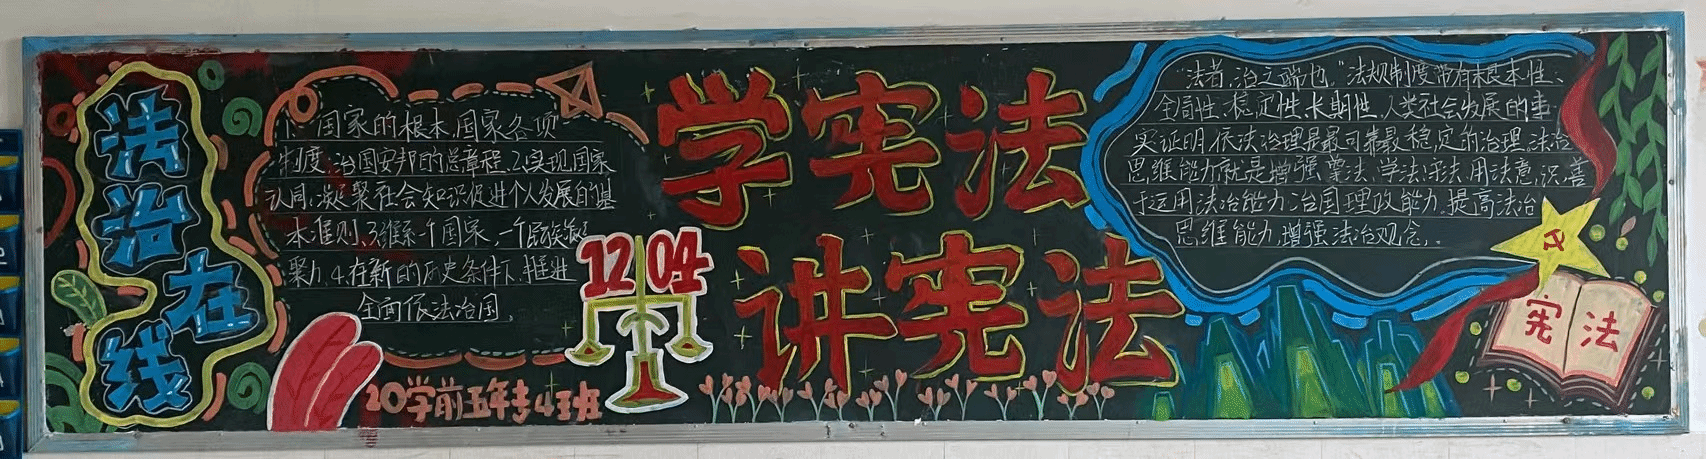 法治在线
1、国家的根本,国家各项
制度,治国安邦的总章程.2.实现国家
认同,凝聚社会知识促进个人发展的基
本准则.3.维系一个国家,一个民族凝
聚力.4.在新的历史条件下,推进
全面依法治国.
20学前五年专4班
12 04
学宪法
讲宪法
"法者,治之端也."法规制度带有根本性、
全局性、稳定性、长期性.人类社会发展的事
实证明,依法治理是最可靠最稳定的治理,法治
思维能力就是增强尊法、学法、守法、用法意识,善
于运用法治能力,治国理政能力.提高法治
思维能力,增强法治观念.
宪法